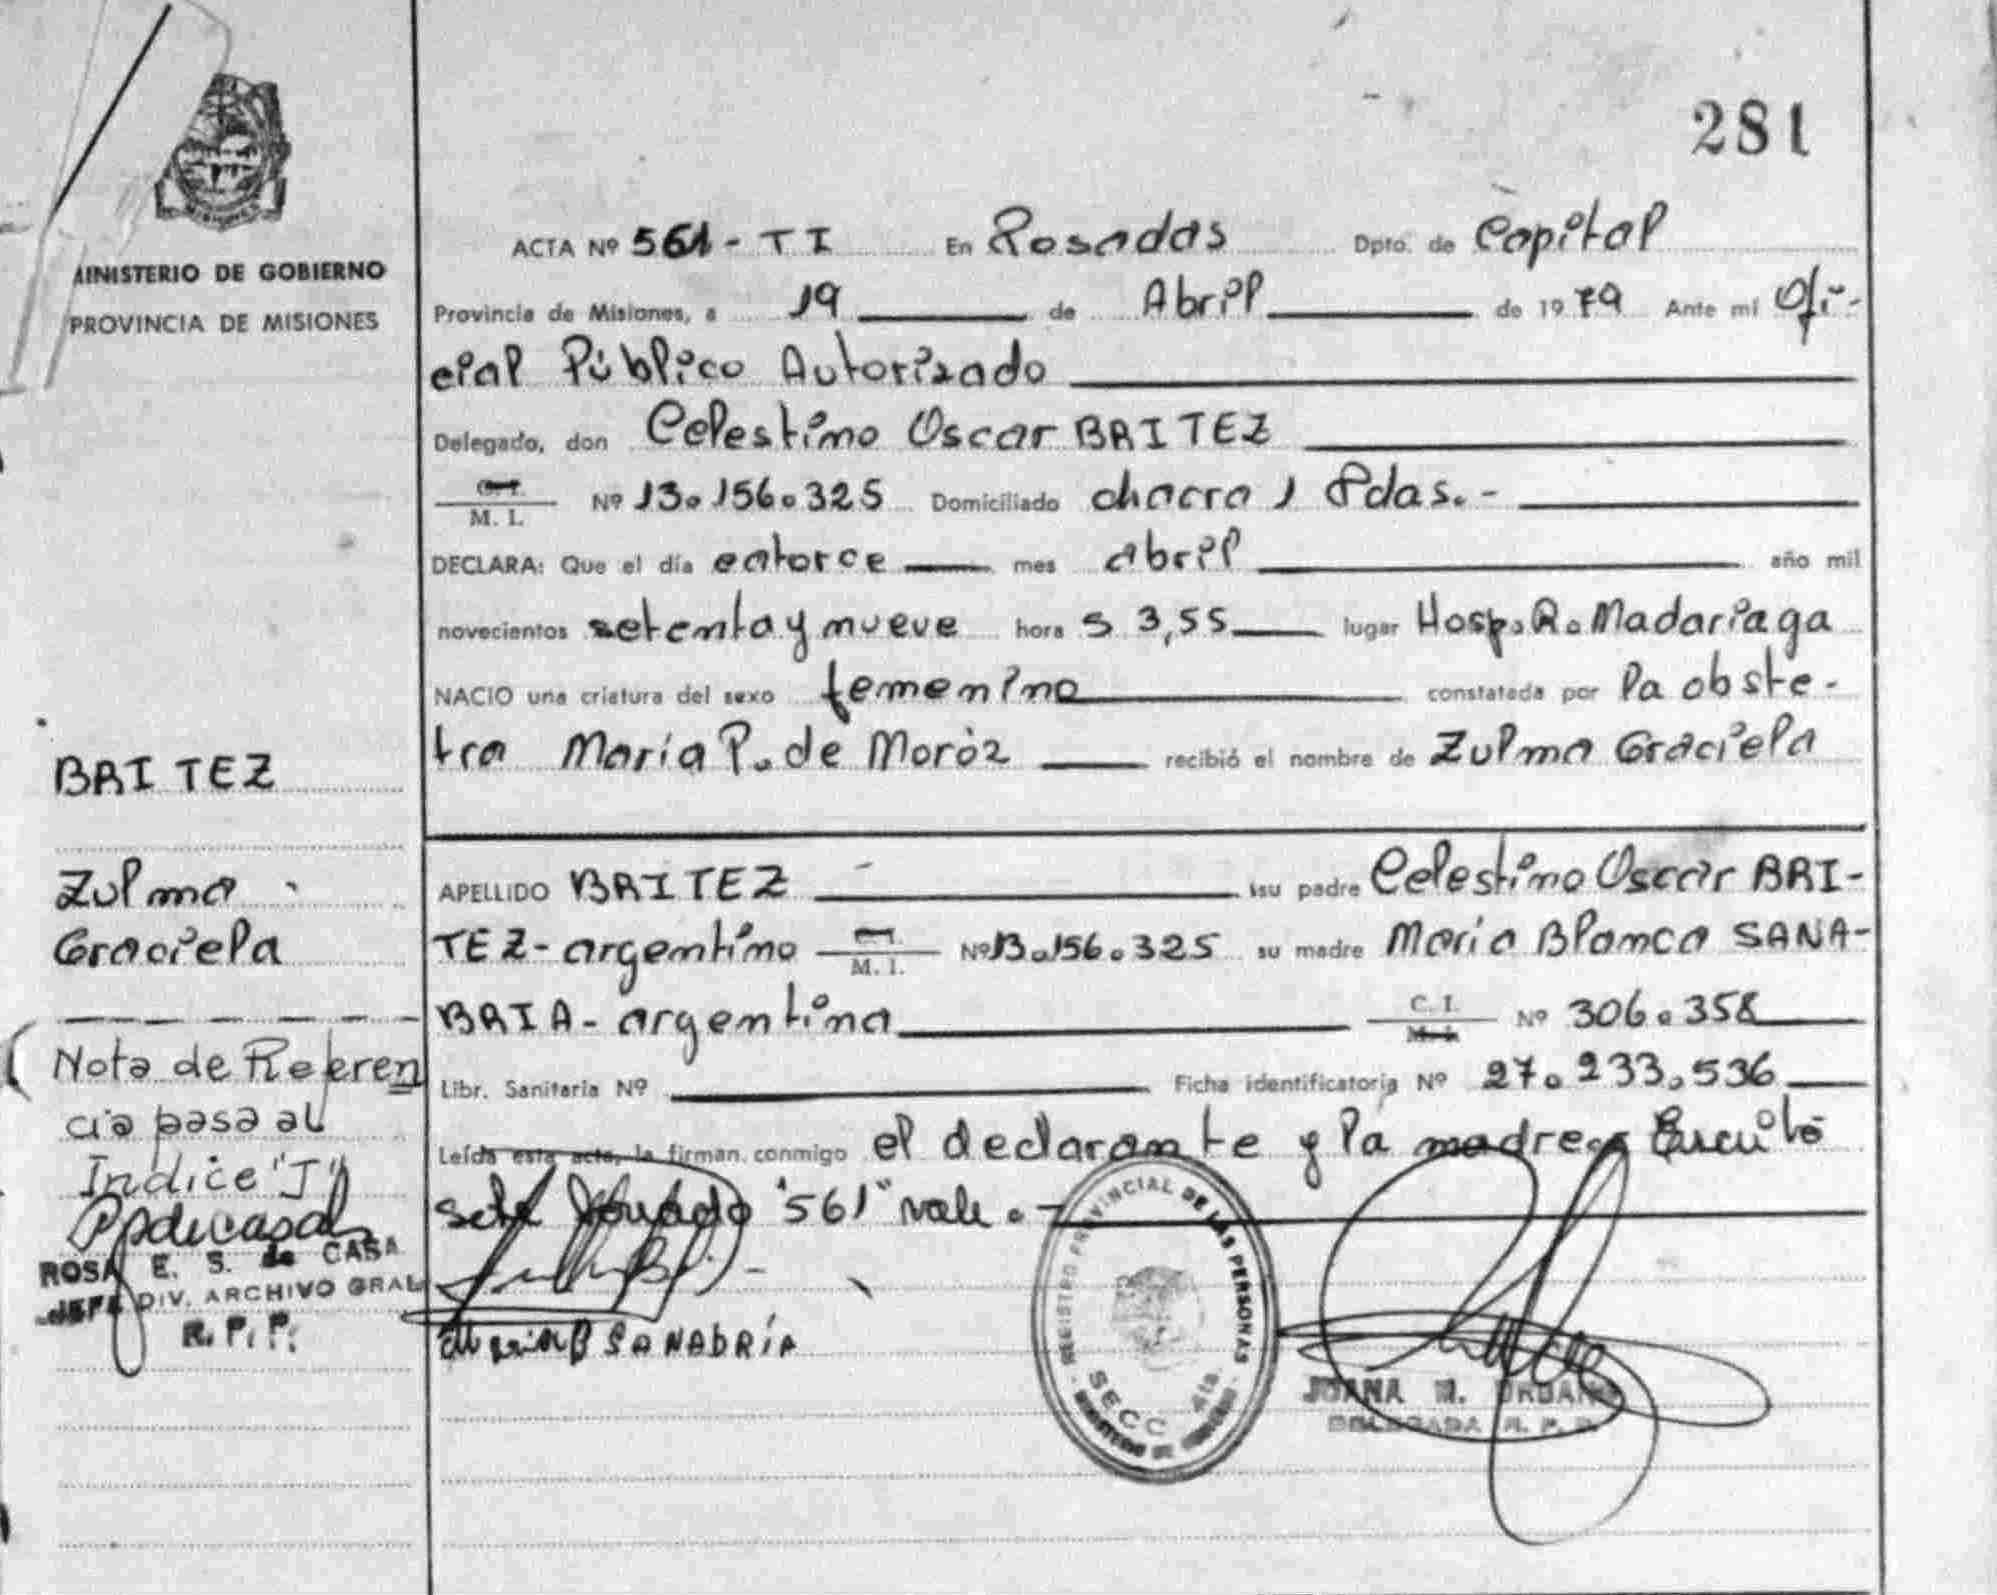 281
MISIONES
MINISTERIO DE GOBIERNO
PROVINCIA DE MISIONES
ACTA Nº 561 - T I En Posadas Dpto. de Capital
Provincia de Misiones, a 19 de Abril de 1979 Ante mi Ofi-
cial Público Autorizado
Delegado, don Celestino Oscar BRITEZ
C. I.
M. I. Nº 13.156.325 Domiciliado chacra 1 Pdas.-
DECLARA: Que el día catorce mes abril año mil
novecientos setenta y nueve hora s 3,55 lugar Hosp. R. Madariaga
NACIO una criatura del sexo femenino constatada por la obste-
tra María P. de Moróz recibió el nombre de Zulma Graciela
BRITEZ
Zulma
Graciela
APELLIDO BRITEZ su padre Celestino Oscar BRI-
TEZ - argentino M. I. Nº 13.156.325 su madre María Blanca SANA-
BRIA - argentina C. I. M. I. Nº 306.358
Libr. Sanitaria Nº Ficha identificatoria Nº 27.233.536
Leída esta acta, la firman conmigo el declarante y la madre
"561" vale.-
Nota de Referen
cia pasa al
Indice "J"
ROSA E. S. de CASA
JEFE DIV. ARCHIVO GRAL
R. P. P.
Maria B SANABRÍA
REGISTRO PROVINCIAL DE LAS PERSONAS
SECC 4ta.
JUANA M.
DELEGADA R. P. P.